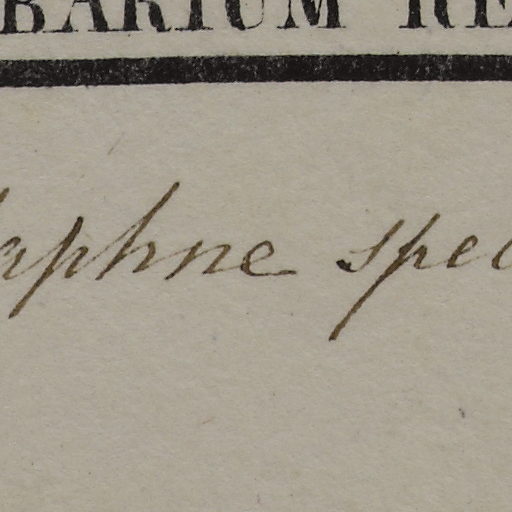 BARIUM RE
aphne spec